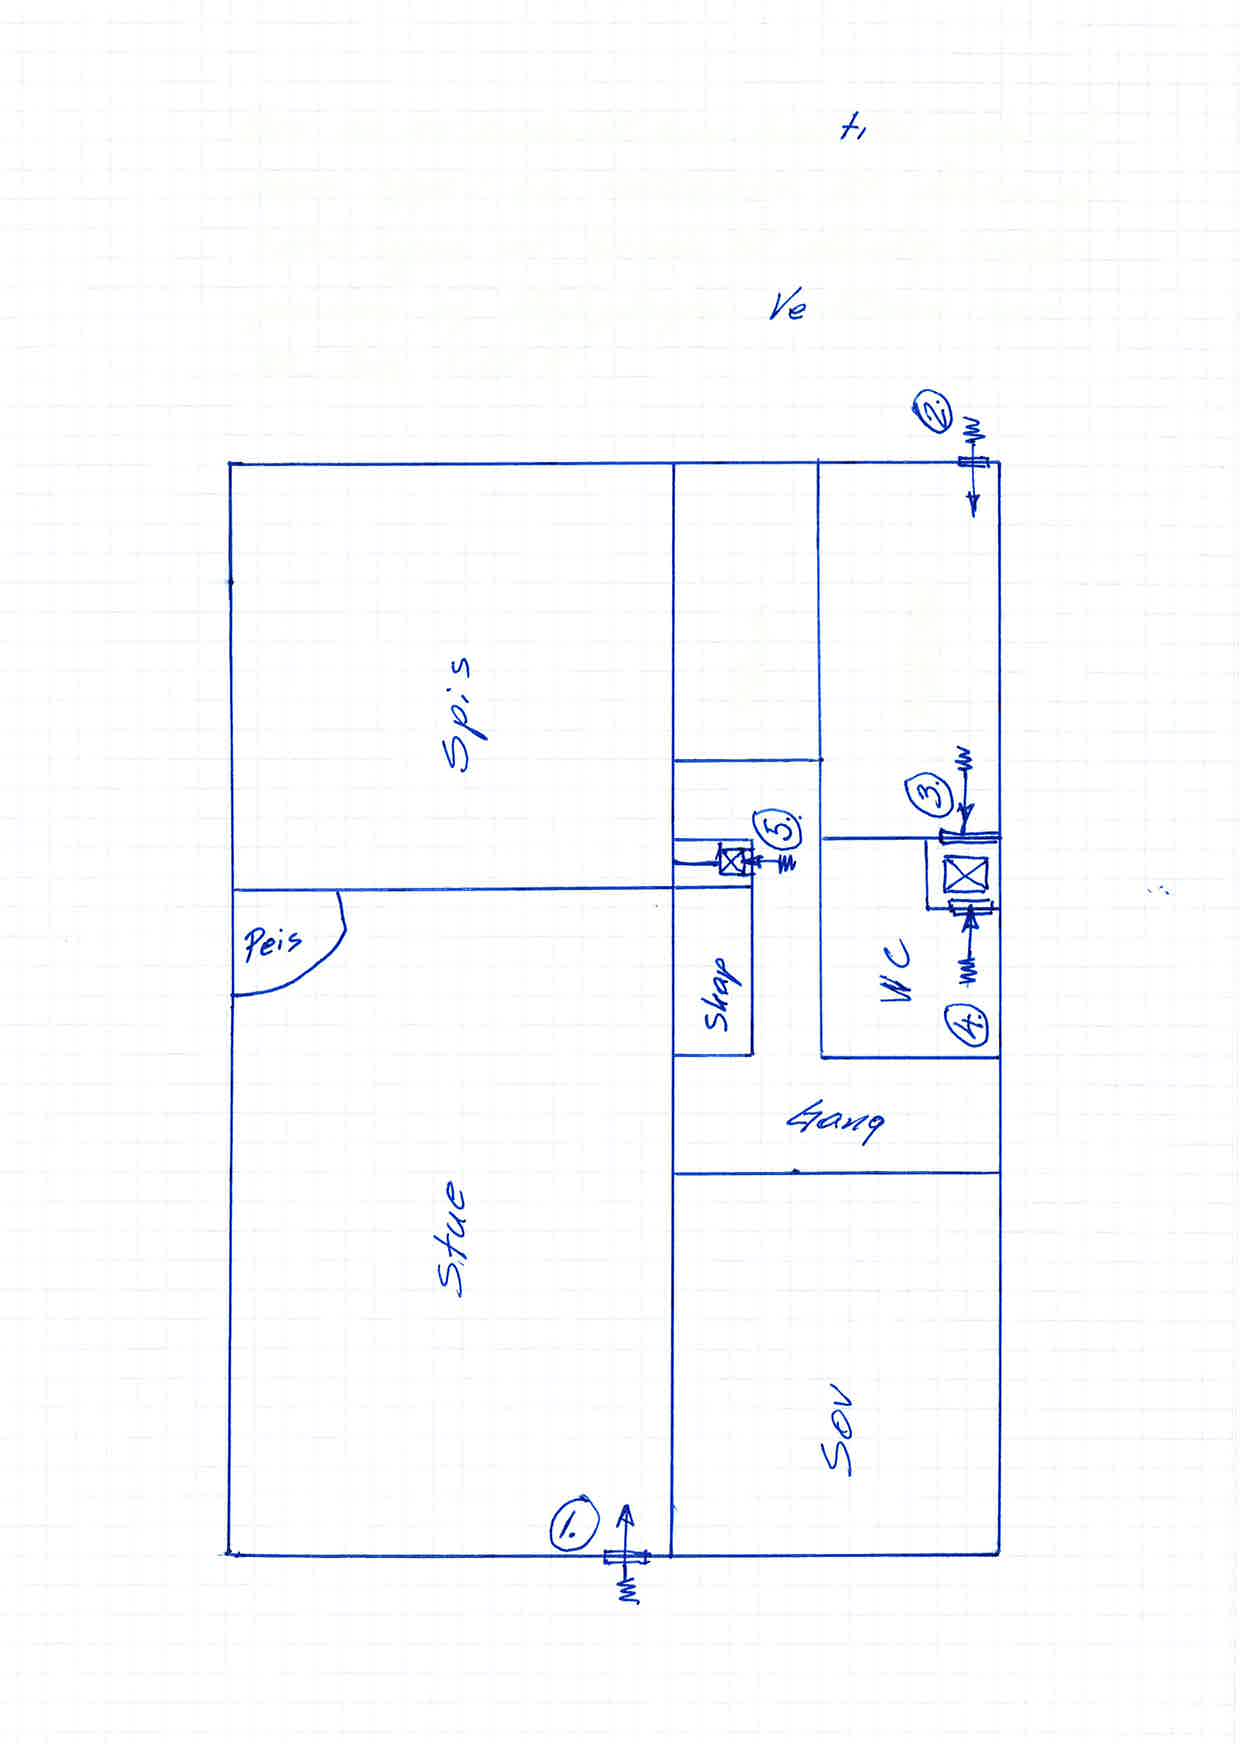 Ve
2.
Spis
3.
5.
Peis
WC
Skap
4.
Gang
Stue
Sov
1.